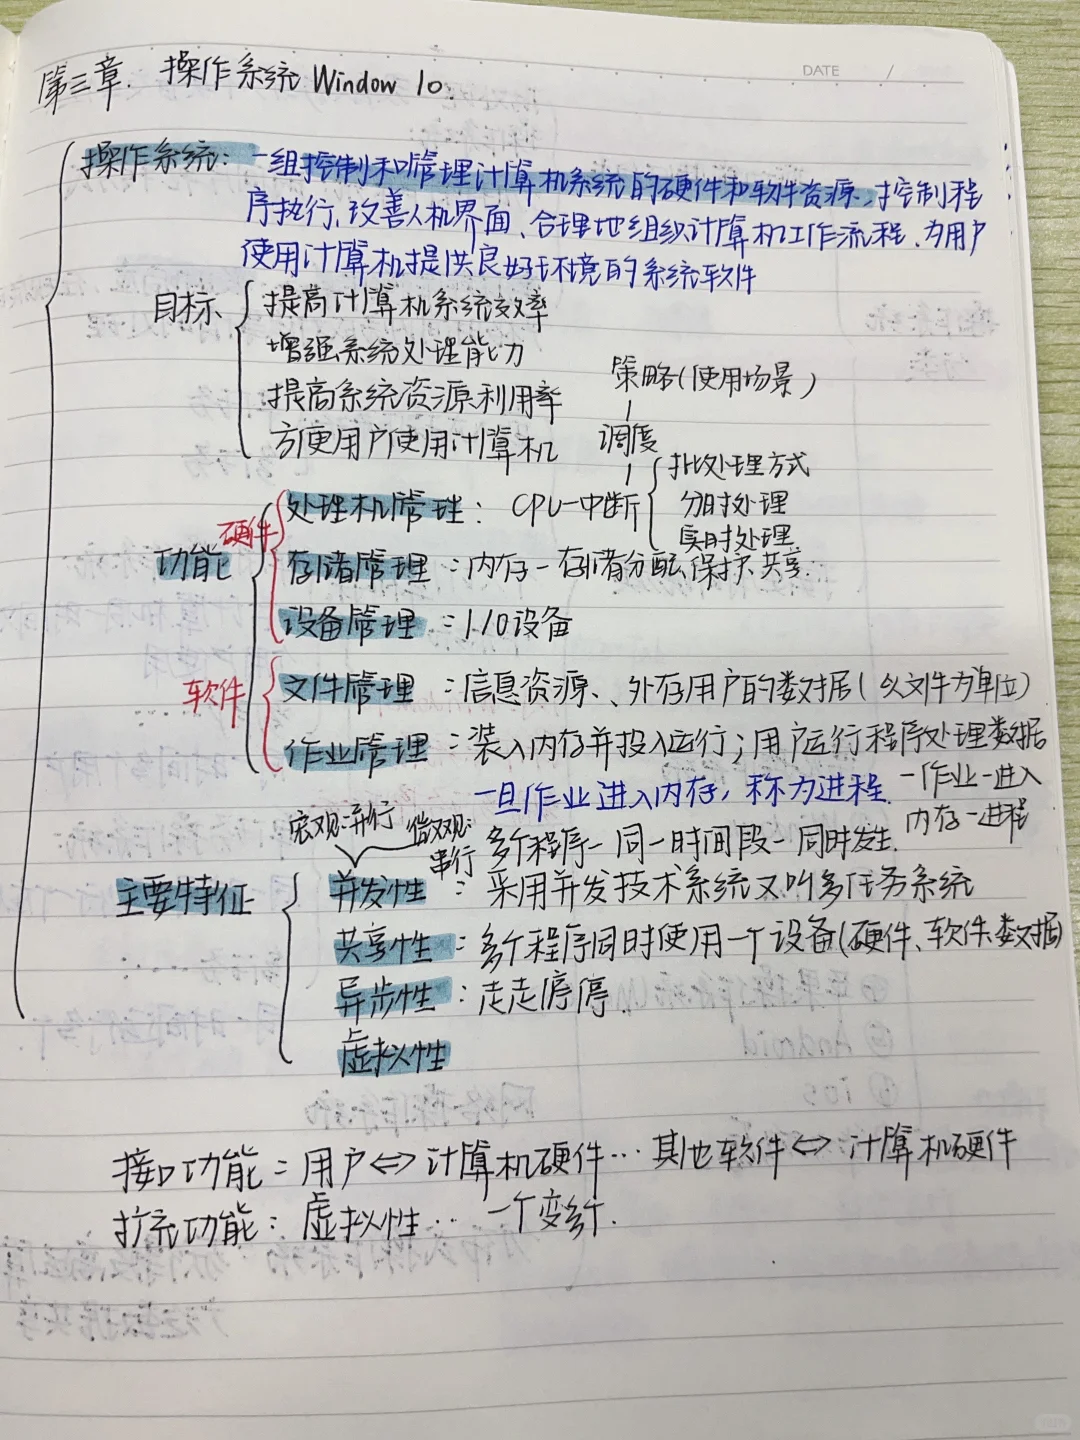 DATE /
第三章. 操作系统 Window 10.
操作系统: 一组控制和管理计算机系统的硬件和软件资源、控制程
序执行、改善人机界面、合理地组织计算机工作流程、为用户
使用计算机提供良好环境的系统软件
目标
提高计算机系统效率
增强系统处理能力
提高系统资源利用率
方便用户使用计算机
策略(使用场景)
调度
功能
硬件
处理机管理: CPU—中断
批处理方式
分时处理
实时处理
存储管理: 内存—存储分配、保护、共享.
设备管理: I/O设备
软件
文件管理: 信息资源、外存用户的数据(以文件为单位)
作业管理: 装入内存并投入运行; 用户运行程序处理数据
一旦作业进入内存, 称为进程. 一作业—进入
内存—进程
主要特征
宏观:并行 微观:
串行
多个程序—同一时间段—同时发生.
并发性: 采用并发技术系统又叫多任务系统
共享性: 多个程序同时使用一个设备(硬件、软件、数据)
异步性: 走走停停.
虚拟性
接口功能: 用户⇔计算机硬件… 其他软件⇔计算机硬件
扩充功能: 虚拟性… 一个变多个.